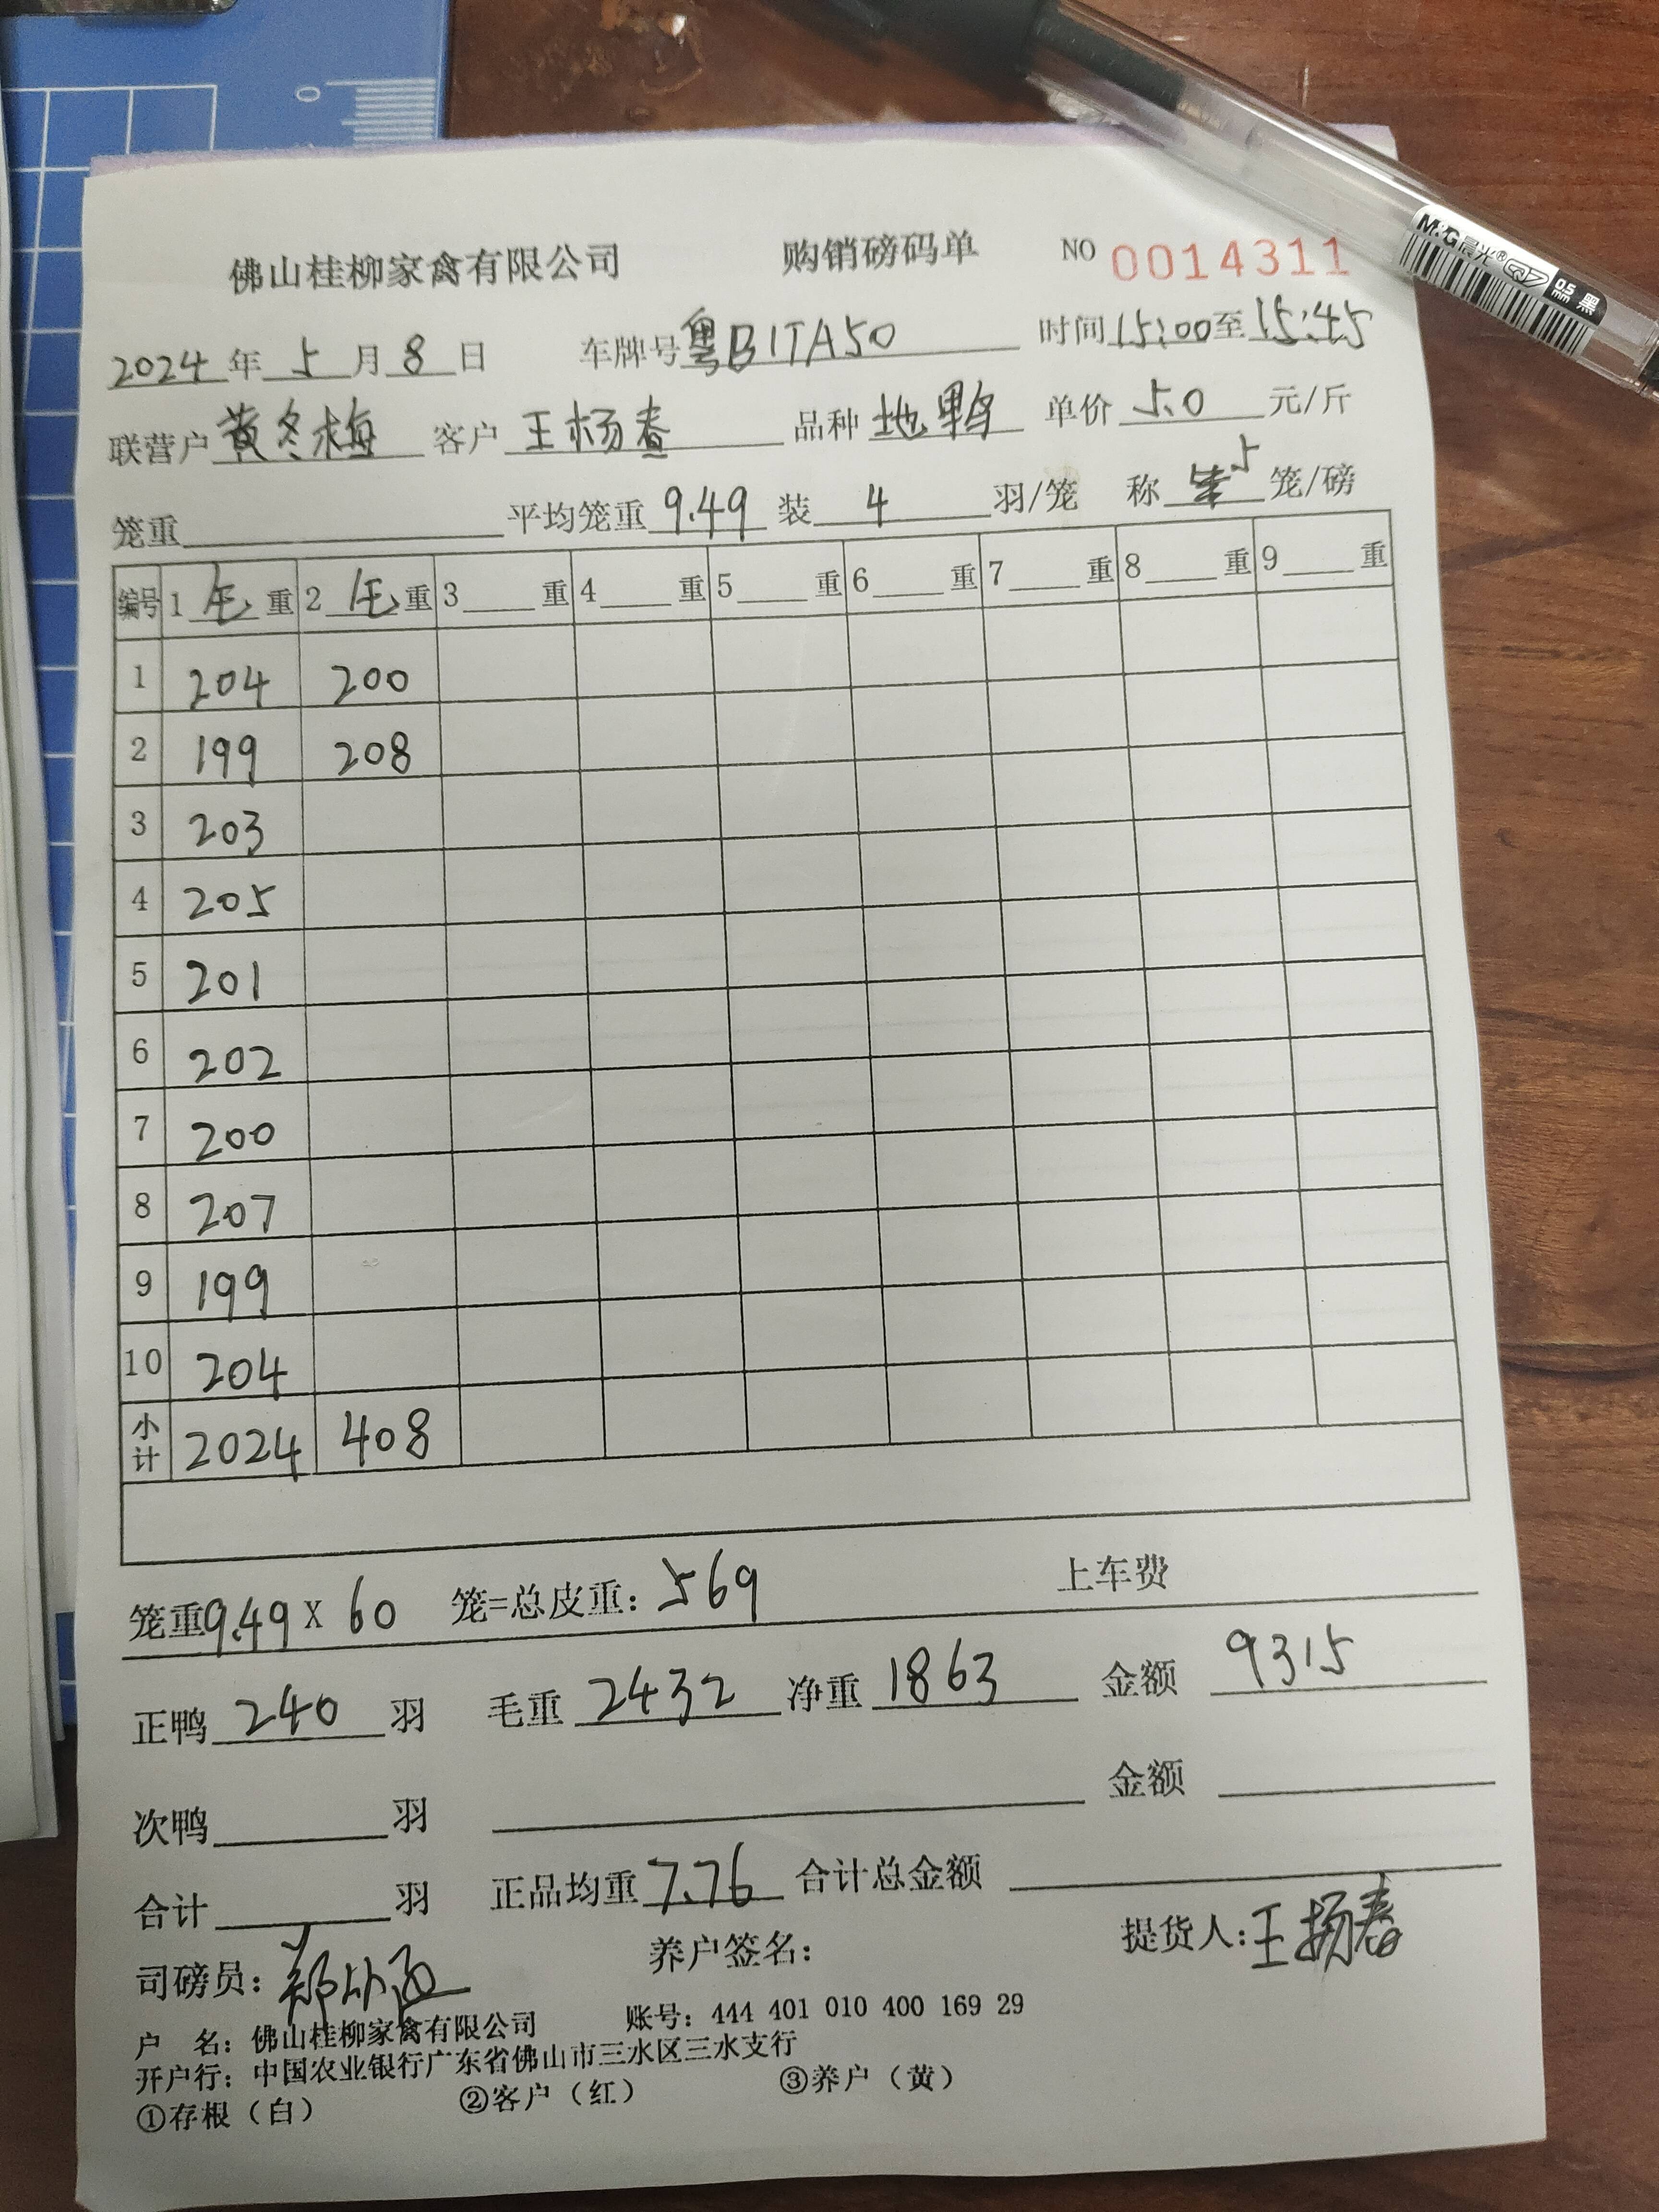 佛山桂柳家禽有限公司 购销磅码单 NO 0014311
2024年5月8日 车牌号粤B1TA50 时间15:00至15:45
联营户黄冬梅 客户王杨春 品种地鸭 单价5.0元/斤
笼重 平均笼重9.49 装4羽/笼 称5笼/磅
编号 1毛重 2毛重 3重 4重 5重 6重 7重 8重 9重
1 204 200
2 199 208
3 203
4 205
5 201
6 202
7 200
8 207
9 199
10 204
小计 2024 408
笼重9.49X60 笼=总皮重：569 上车费
正鸭240羽 毛重2432 净重1863 金额9315
次鸭 羽 金额
合计 羽 正品均重7.76 合计总金额
司磅员： 养户签名： 提货人：王扬春
户 名：佛山桂柳家禽有限公司 账号：444 401 010 400 169 29
开户行：中国农业银行广东省佛山市三水区三水支行
①存根（白） ②客户（红） ③养户（黄）
M&G晨光® Q7 0.5mm 黑
0